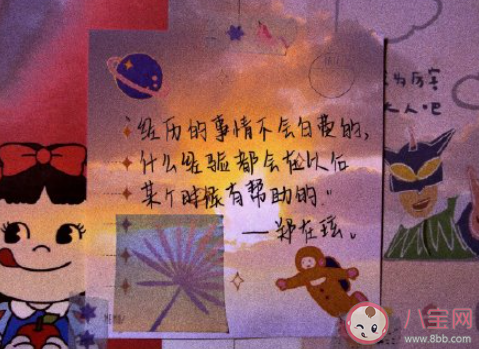 经历的事情不会白费的,
什么经验都会在以后
某个时候有帮助的."
——郑在玹。
为厉害
大人吧
MEMO
八宝网
www.8bb.com